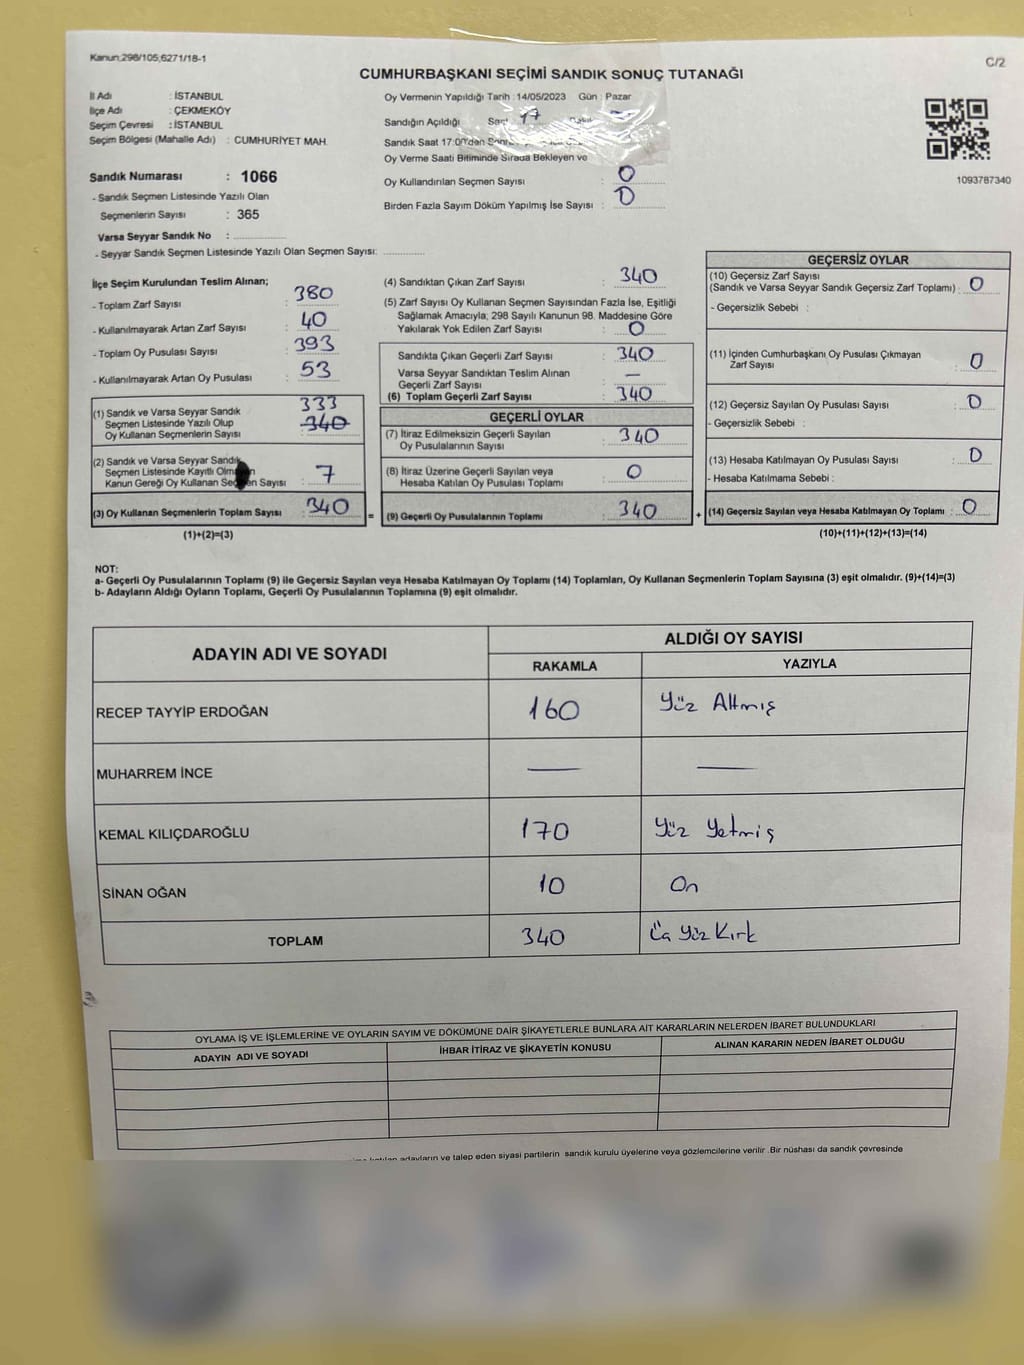 Kanun:298/105,6271/18-1
C/2
CUMHURBAŞKANI SEÇİMİ SANDIK SONUÇ TUTANAĞI
İl Adı : İSTANBUL
İlçe Adı : ÇEKMEKÖY
Seçim Çevresi : İSTANBUL
Seçim Bölgesi (Mahalle Adı) : CUMHURİYET MAH.
Sandık Numarası : 1066
- Sandık Seçmen Listesinde Yazılı Olan
Seçmenlerin Sayısı : 365
Varsa Seyyar Sandık No :
- Seyyar Sandık Seçmen Listesinde Yazılı Olan Seçmen Sayısı:
Oy Vermenin Yapıldığı Tarih : 14/05/2023 Gün : Pazar
Sandığın Açıldığı Saat 17
Sandık Saat 17:00'den
Oy Verme Saati Bitiminde Sırada Bekleyen ve
Oy Kullandırılan Seçmen Sayısı : 0
Birden Fazla Sayım Döküm Yapılmış İse Sayısı : 0
1093787340
İlçe Seçim Kurulundan Teslim Alınan;
- Toplam Zarf Sayısı : 380
- Kullanılmayarak Artan Zarf Sayısı : 40
- Toplam Oy Pusulası Sayısı : 393
- Kullanılmayarak Artan Oy Pusulası : 53
333
(1) Sandık ve Varsa Seyyar Sandık
Seçmen Listesinde Yazılı Olup : 340
Oy Kullanan Seçmenlerin Sayısı
(2) Sandık ve Varsa Seyyar Sandık
Seçmen Listesinde Kayıtlı Olmayan
Kanun Gereği Oy Kullanan Seçmen Sayısı : 7
(3) Oy Kullanan Seçmenlerin Toplam Sayısı : 340
(1)+(2)=(3)
=
(4) Sandıktan Çıkan Zarf Sayısı : 340
(5) Zarf Sayısı Oy Kullanan Seçmen Sayısından Fazla İse, Eşitliği
Sağlamak Amacıyla; 298 Sayılı Kanunun 98. Maddesine Göre
Yakılarak Yok Edilen Zarf Sayısı : 0
Sandıkta Çıkan Geçerli Zarf Sayısı : 340
Varsa Seyyar Sandıktan Teslim Alınan
Geçerli Zarf Sayısı : —
(6) Toplam Geçerli Zarf Sayısı : 340
GEÇERLİ OYLAR
(7) İtiraz Edilmeksizin Geçerli Sayılan
Oy Pusulalarının Sayısı : 340
(8) İtiraz Üzerine Geçerli Sayılan veya
Hesaba Katılan Oy Pusulası Toplamı : 0
(9) Geçerli Oy Pusulalarının Toplamı : 340
+
GEÇERSİZ OYLAR
(10) Geçersiz Zarf Sayısı
(Sandık ve Varsa Seyyar Sandık Geçersiz Zarf Toplamı) : 0
- Geçersizlik Sebebi :
(11) İçinden Cumhurbaşkanı Oy Pusulası Çıkmayan
Zarf Sayısı : 0
(12) Geçersiz Sayılan Oy Pusulası Sayısı : 0
- Geçersizlik Sebebi :
(13) Hesaba Katılmayan Oy Pusulası Sayısı : 0
- Hesaba Katılmama Sebebi :
(14) Geçersiz Sayılan veya Hesaba Katılmayan Oy Toplamı : 0
(10)+(11)+(12)+(13)=(14)
NOT:
a- Geçerli Oy Pusulalarının Toplamı (9) ile Geçersiz Sayılan veya Hesaba Katılmayan Oy Toplamı (14) Toplamları, Oy Kullanan Seçmenlerin Toplam Sayısına (3) eşit olmalıdır. (9)+(14)=(3)
b- Adayların Aldığı Oyların Toplamı, Geçerli Oy Pusulalarının Toplamına (9) eşit olmalıdır.
ADAYIN ADI VE SOYADI
ALDIĞI OY SAYISI
RAKAMLA YAZIYLA
RECEP TAYYİP ERDOĞAN 160 Yüz Altmış
MUHARREM İNCE — —
KEMAL KILIÇDAROĞLU 170 Yüz Yetmiş
SİNAN OĞAN 10 On
TOPLAM 340 Üç Yüz Kırk
OYLAMA İŞ VE İŞLEMLERİNE VE OYLARIN SAYIM VE DÖKÜMÜNE DAİR ŞİKAYETLERLE BUNLARA AİT KARARLARIN NELERDEN İBARET BULUNDUKLARI
ADAYIN ADI VE SOYADI İHBAR İTİRAZ VE ŞİKAYETİN KONUSU ALINAN KARARIN NEDEN İBARET OLDUĞU
adayların ve talep eden siyasi partilerin sandık kurulu üyelerine veya gözlemcilerine verilir .Bir nüshası da sandık çevresinde